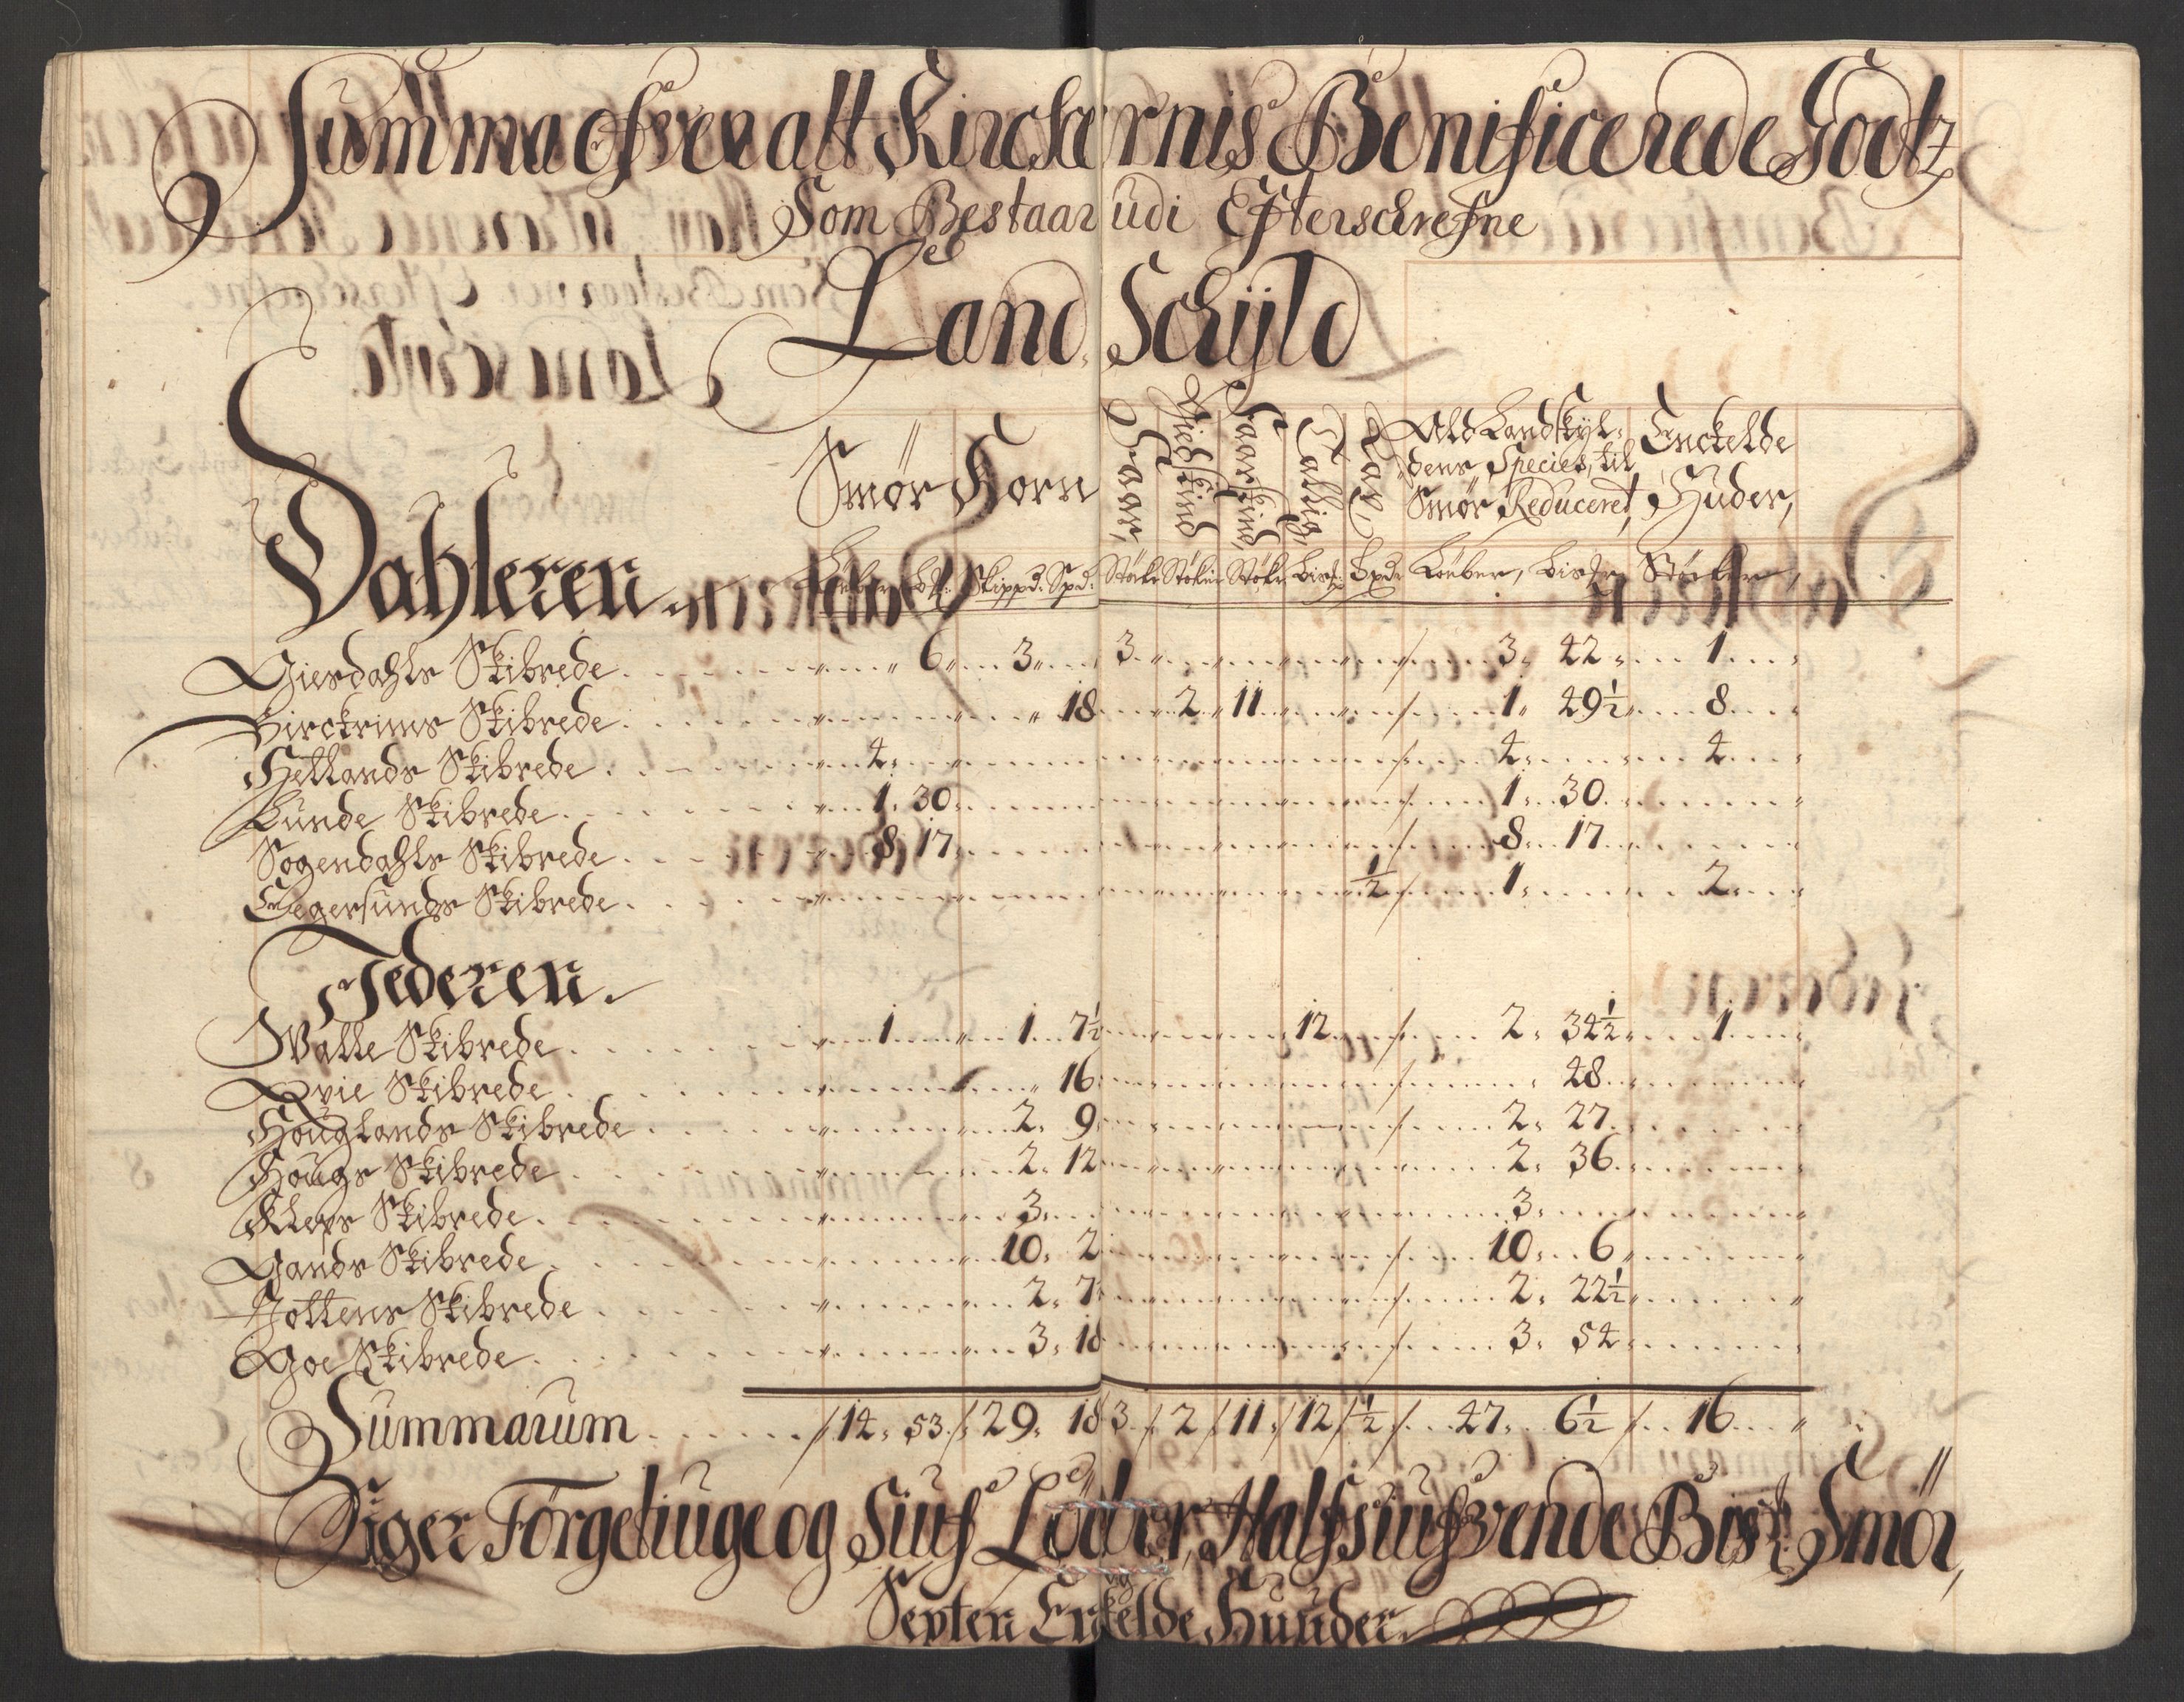 Summa ofver alt Kirckernis Benificerede Godtz
Som Bestaar udi Efterschrefne
Land Schÿld
Dahleren
Smör Korn Haar, Giedskind Faarskind, Tallig, Tael, Ald Landskÿl- dens Species, til Smör Reduceret, Enckelde Huder,
Löeber, Skippd: Spd: Stöke Stöker Stöker Bisk: Bpd: Löeber, Bisk Stöcker,
Gierdahls Skibrede 6 3 3 3 42 1
Birckrims Skibrede 18 2 11 1 49½ 8
Hetlands Skibrede 4 4 4
Lunde Skibrede 1 30 1 30
Sogendahls Skibrede 8 17 8 17
Eegersunds Skibrede ½ 1 2
Jederen
Walle Skibrede 1 1 7½ 12 2 34½ 1
Qvie Skibrede 16 48
Houglands Skibrede 2 9 2 27
Hougs Skibrede 2 12 2 36
Kleps Skibrede 3 3
Gands Skibrede 10 2 10 6
Jottens Skibrede 2 7 2 22½
Goe Skibrede 3 18 3 54
Summarum 14 53 29 18 3 2 11 12 ½ 47 6½ 16
Siger Förgetiuge og Siuf Löeber, Halfsiufvende Bisk Smör,
og
Sexten Enkelde Huuder